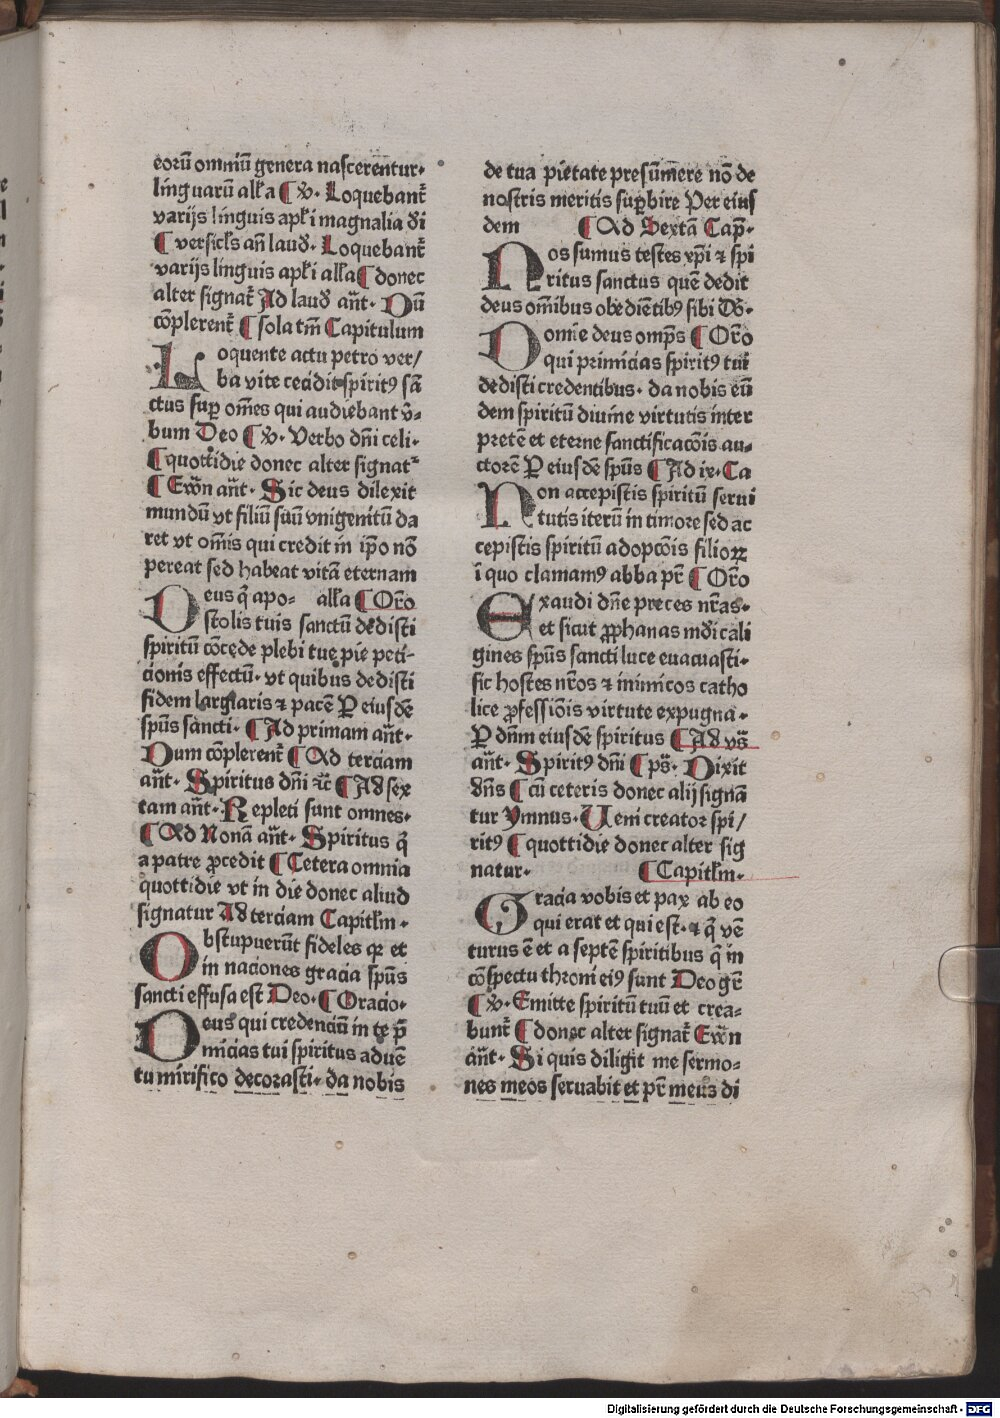 eorū omniū genera nascerentur·
linguarū alľa ¶ ℣. Loquebant᷑
varijs linguis apľi magnalia di
¶ versicľs an̄ laud·. Loquebant᷑
varijs linguis apľi alľa ¶ donec
alter signat᷑ Ad laud an̄t· Dū
cōplerent᷑ ¶ sola tm̄ Capitulum
Loquente actu petro ver/
ba vite cecidit spiritꝰ sā
ctus sup̲ om̄es qui audiebant v̄-
bum Deo ¶ ℣. Verbo dn̄i celi·
¶ quottidie donec alter signat᷑
¶ Ew̄n an̄t· Sic deus dilexit
mundū vt filiū suū vnigenitū da
ret vt om̄is qui credit in ip̄o nō
pereat sed habeat vitā eternam
Deus q̄ apo= alľa ¶ Or̄o
stolis tuis sanctū dedisti
spiritū cōcede plebi tue pie peti-
cionis effectū· vt quibus dedisti
fidem largiaris ⁊ pacē P̲ eiusdē
sp̄us sancti· ¶ Ad primam an̄t·
Dum cōplerent᷑ ¶ Ad terciam
an̄t· Spiritus dn̄i ⁊c̄ ¶ Ad sex
tam an̄t· Repleti sunt omnes·
¶ Ad Nonā an̄t· Spiritus q̄
a patre ꝓcedit ¶ Cetera omnia
quottidie vt in die donec aliud
signatur Ad terciam Capitľm·
Obstupuerūt fideles qꝛ et
in naciones gracia sp̄us
sancti effusa est Deo· ¶ Oracio·
Deus qui credenciū in te p̄
micias tui spiritus aduē
tu mirifico decorasti· da nobis
de tua pietate presūmere nō de
nostris meritis sup̲bire Per eius
dem ¶ Ad Sextā Cap̄·
Nos sumus testes xp̄i ⁊ spi
ritus sanctus quē dedit
deus om̄ibus obediētibꝰ sibi D̄·
Domīe deus omp̄s ¶ Or̄o
qui primicias spiritꝰ tui
dedisti credentibus· da nobis eū
dem spiritū diuine virtutis inter
pretē et eterne sanctificacōis au-
ctorē P̲ eiusdē sp̄us ¶ Ad ix· Ca
Non accepistis spiritū serui
tutis iterū in timore sed ac
cepistis spiritū adopcōis filioꝝ
ī quo clamamꝰ abba pr̄ ¶ Or̄o
Exaudi dn̄e preces nr̄as·
et sicut ꝓphanas mūdi cali
gines sp̄us sancti luce euacuasti·
sic hostes nr̄os ⁊ inimicos catho
lice ꝓfessiōis virtute expugna·
P̲ dn̄m eiusdē spiritus ¶ Ad vs̄
an̄t· Spiritꝰ dn̄i ¶ ps̄· Dixit
dn̄s ¶ cū ceteris donec alij signā
tur Ymnus· Veni creator spi/
ritꝰ ¶ quottidie donec alter sig
natur· ¶ Capitľm·
Gracia vobis et pax ab eo
qui erat et qui est· ⁊ q̄ vē
turus ē et a septē spiritibus q̄ in
cōspectu throni eiꝰ sunt Deo gr̄
¶ ℣. Emitte spiritū tuū et crea-
bunt᷑ ¶ donec alter signat᷑ Ew̄n
an̄t· Si quis diligit me sermo-
nes meos seruabit et pr̄ meus di
Digitalisierung gefördert durch die Deutsche Forschungsgemeinschaft - DFG